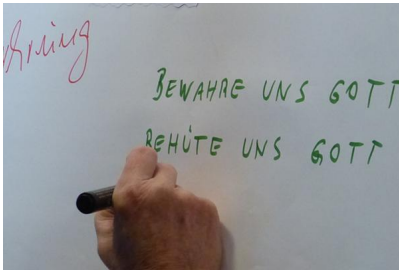 BEWAHRE UNS GOTT
BEHÜTE UNS GOTT